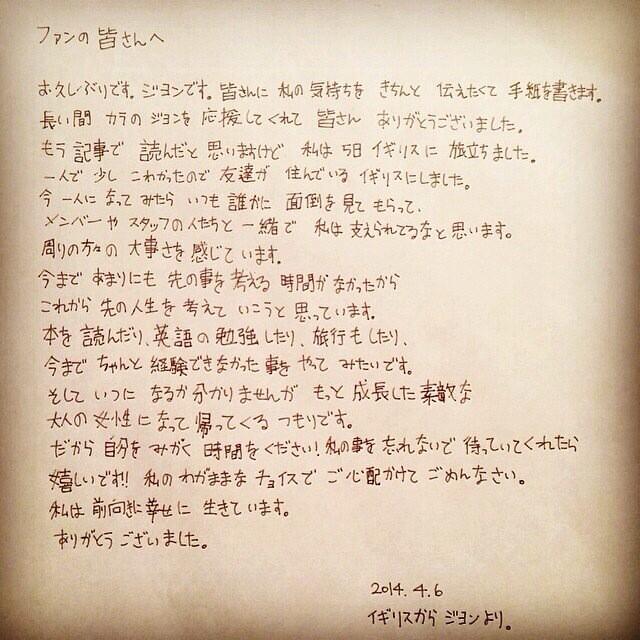 ファンの 皆さんへ
お久しぶりです。ジヨンです。皆さんに 私の 気持ちを きちんと 伝えたくて 手紙を書きます。
長い間 カラの ジヨンを 応援してくれて 皆さん ありがとうございました。
もう 記事で 読んだと 思いますけど 私は 5日 イギリスに 旅立ちました。
一人で 少し こわかったので 友達が 住んでいる イギリスにしました。
今 一人に なって みたら いつも 誰かに 面倒を 見て もらって、
メンバーや スタッフの人たちと 一緒で 私は 支えられてるなと 思います。
周りの方々の 大事さを 感じて います。
今まで あまりにも 先の事を 考える 時間が なかったから
これから 先の 人生を 考えて いこうと 思っています。
本を 読んだり、英語の 勉強したり、旅行もしたり、
今まで ちゃんと 経験できなかった 事を やって みたいです。
そして いつに なるか 分かりませんが もっと 成長した 素敵な
大人の 女性に なって 帰ってくる つもりです。
だから 自分を みがく 時間を ください! 私の事を 忘れないで 待っていてくれたら
嬉しいです!! 私の わがままな チョイスで ご心配かけて ごめんなさい。
私は 前向きに 幸せに 生きています。
ありがとうございました。
2014. 4. 6
イギリスから ジヨンより。